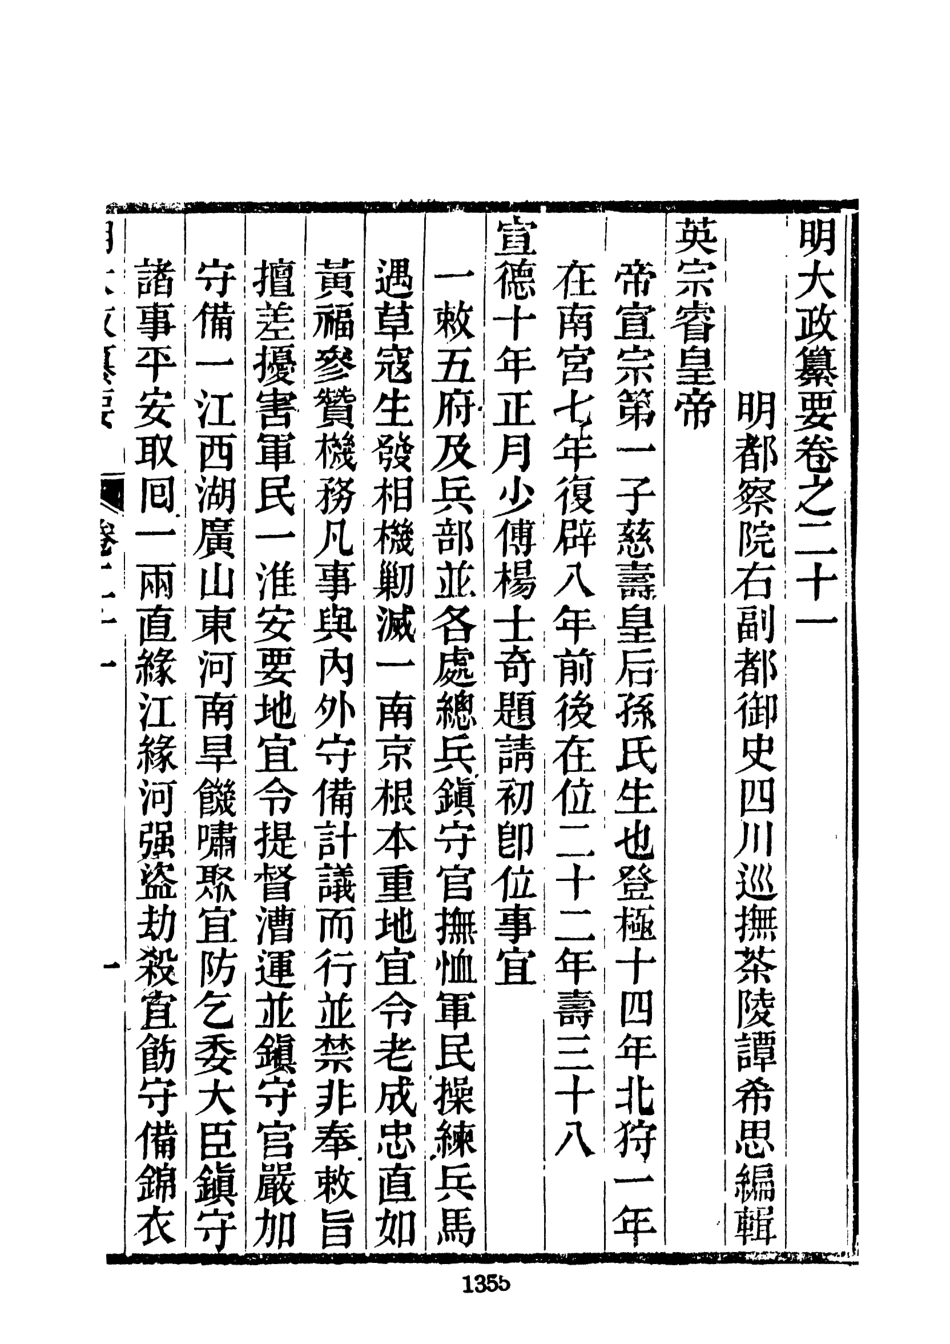 明大政纂要卷之二十一
明都察院右副都御史四川巡撫茶陵譚希思編輯
英宗睿皇帝
帝宣宗第一子慈壽皇后孫氏生也登極十四年北狩一年
在南宮七年復辟八年前後在位二十二年壽三十八
宣德十年正月少傅楊士奇題請初卽位事宜
一敕五府及兵部並各處總兵鎭守官撫恤軍民操練兵馬
遇草寇生發相機剿滅一南京根本重地宜令老成忠直如
黃福參贊機務凡事與內外守備計議而行並禁非奉敕旨
擅差擾害軍民一淮安要地宜令提督漕運並鎭守官嚴加
守備一江西湖廣山東河南旱饑嘯聚宜防乞委大臣鎭守
諸事平安取囘一兩直緣江緣河强盜劫殺宜飭守備錦衣
明大政纂要 卷二十一 一
1355